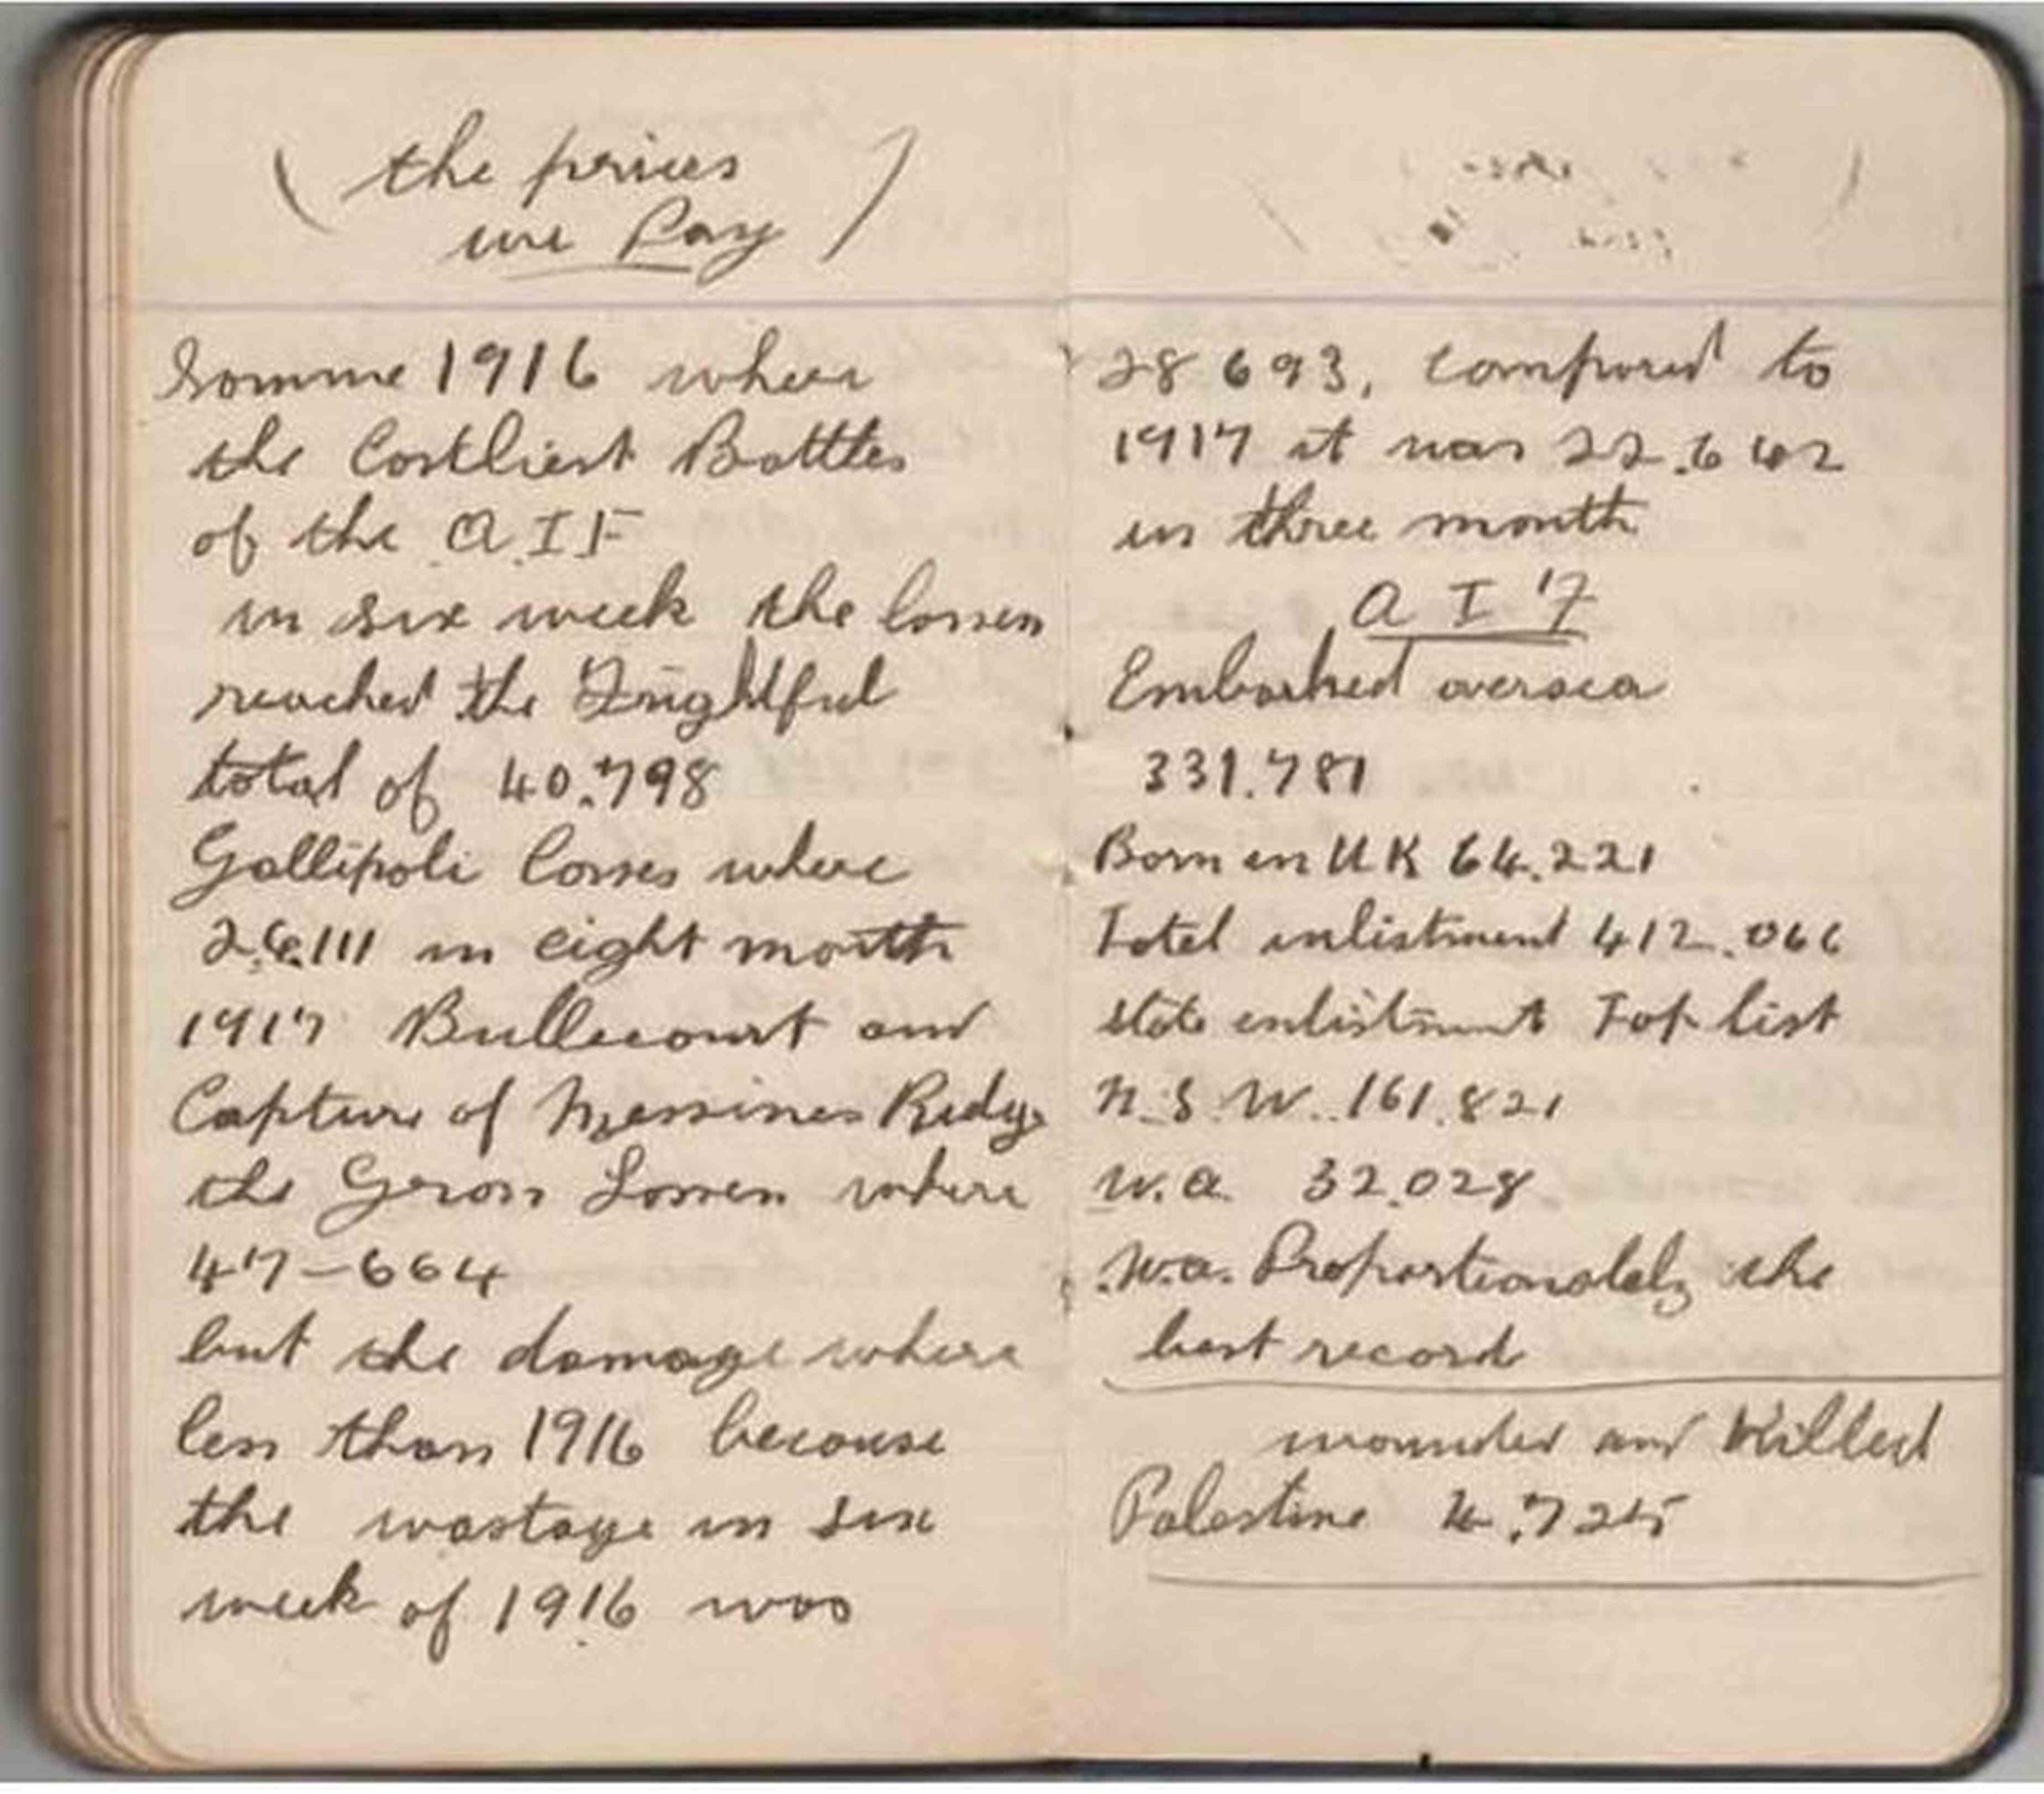 (the prices
we Pay)
Somme 1916 where
the Costliest Battles
of the A.I.F
in six week the losses
reached the Frightful
total of 40.798
Gallipoli losses where
26.111 in eight month
1917 Bullecourt and
Capture of Messines Ridge
the Gross Losses where
47-664
but the damage where
less than 1916 because
the wastage in six
week of 1916 was
28 693, compared to
1917 it was 22.642
in three month
A I F
Embarked oversea
331.781
Born in UK 64.221
Total enlistment 412.066
state enlistment Top list
N.S.W. 161.821
W.A. 32.028
W.A. Proportionately the
best record
wounded and Killed
Palestine 4.725